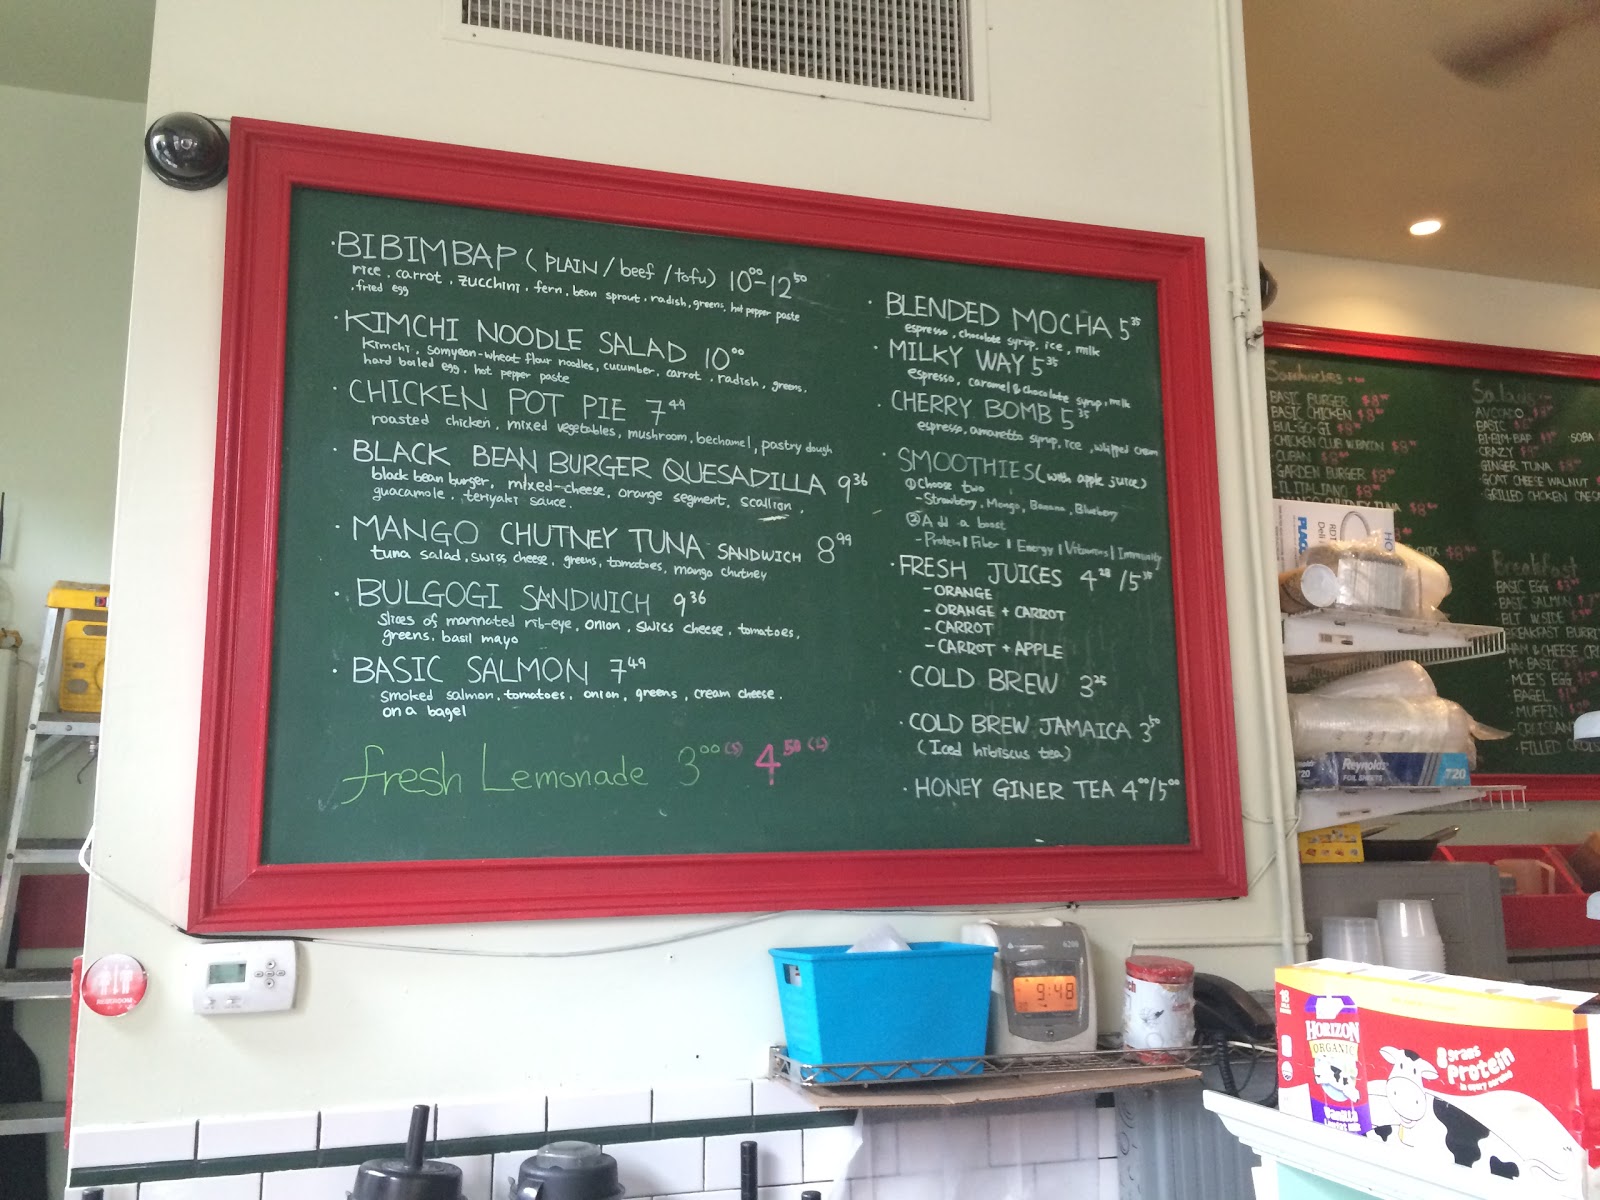 ·BIBIMBAP (PLAIN/beef/tofu) 10⁰⁰-12⁵⁰
rice, carrot, zucchini, fern, bean sprout, radish, greens, hot pepper paste
, fried egg
·KIMCHI NOODLE SALAD 10⁰⁰
Kimchi, somyeon-wheat flour noodles, cucumber, carrot, radish, greens,
hard boiled egg, hot pepper paste
·CHICKEN POT PIE 7⁴⁹
roasted chicken, mixed vegetables, mushroom, bechamel, pastry dough
·BLACK BEAN BURGER QUESADILLA 9³⁶
black bean burger, mixed-cheese, orange segment, scallion,
guacamole, teriyaki sauce.
·MANGO CHUTNEY TUNA SANDWICH 8⁹⁹
tuna salad, swiss cheese, greens, tomatoes, mango chutney
·BULGOGI SANDWICH 9³⁶
slices of marinated rib-eye, onion, swiss cheese, tomatoes,
greens, basil mayo
·BASIC SALMON 7⁴⁹
smoked salmon, tomatoes, onion, greens, cream cheese.
on a bagel
fresh Lemonade 3⁰⁰(S) 4⁵⁰(L)
·BLENDED MOCHA 5³⁵
espresso, chocolate syrup, ice, milk
·MILKY WAY 5³⁵
espresso, caramel & chocolate syrup, milk
·CHERRY BOMB 5³⁵
espresso, amaretto syrup, ice, whipped cream
·SMOOTHIES (with apple juice)
①Choose two
- Strawberry, Mango, Banana, Blueberry
②Add a boost
- Protein | Fiber | Energy | Vitamins | Immunity
·FRESH JUICES 4²⁸/5³⁵
- ORANGE
- ORANGE + CARROT
- CARROT
- CARROT + APPLE
·COLD BREW 3²⁵
·COLD BREW JAMAICA 3⁵⁰
(Iced hibiscus tea)
·HONEY GINER TEA 4⁰⁰/5⁰⁰
Sandwiches
BASIC BURGER $8
BASIC CHICKEN $8
BUL-GO-GI $8
·CHICKEN CLUB W.BACON $8
·CUBAN $8
·GARDEN BURGER $8
·IL ITALIANO $8
TUNA
Salads
AVOCADO
BASIC
BI-BIM-BAP ·SOBA
CRAZY
GINGER TUNA
·GOAT CHEESE WALNUT
·GRILLED CHICKEN
Breakfast
BASIC EGG
·BASIC SALMON
BLT W.SIDE
BREAKFAST
HAM & CHEESE
Mc BASIC
MOE'S EGG
·BAGEL
·MUFFIN
·FILLED
Reynolds
FOIL SHEETS
720
RESTROOM
9:48
18
HORIZON
ORGANIC
Vanilla
8 grams
Protein
in every serving